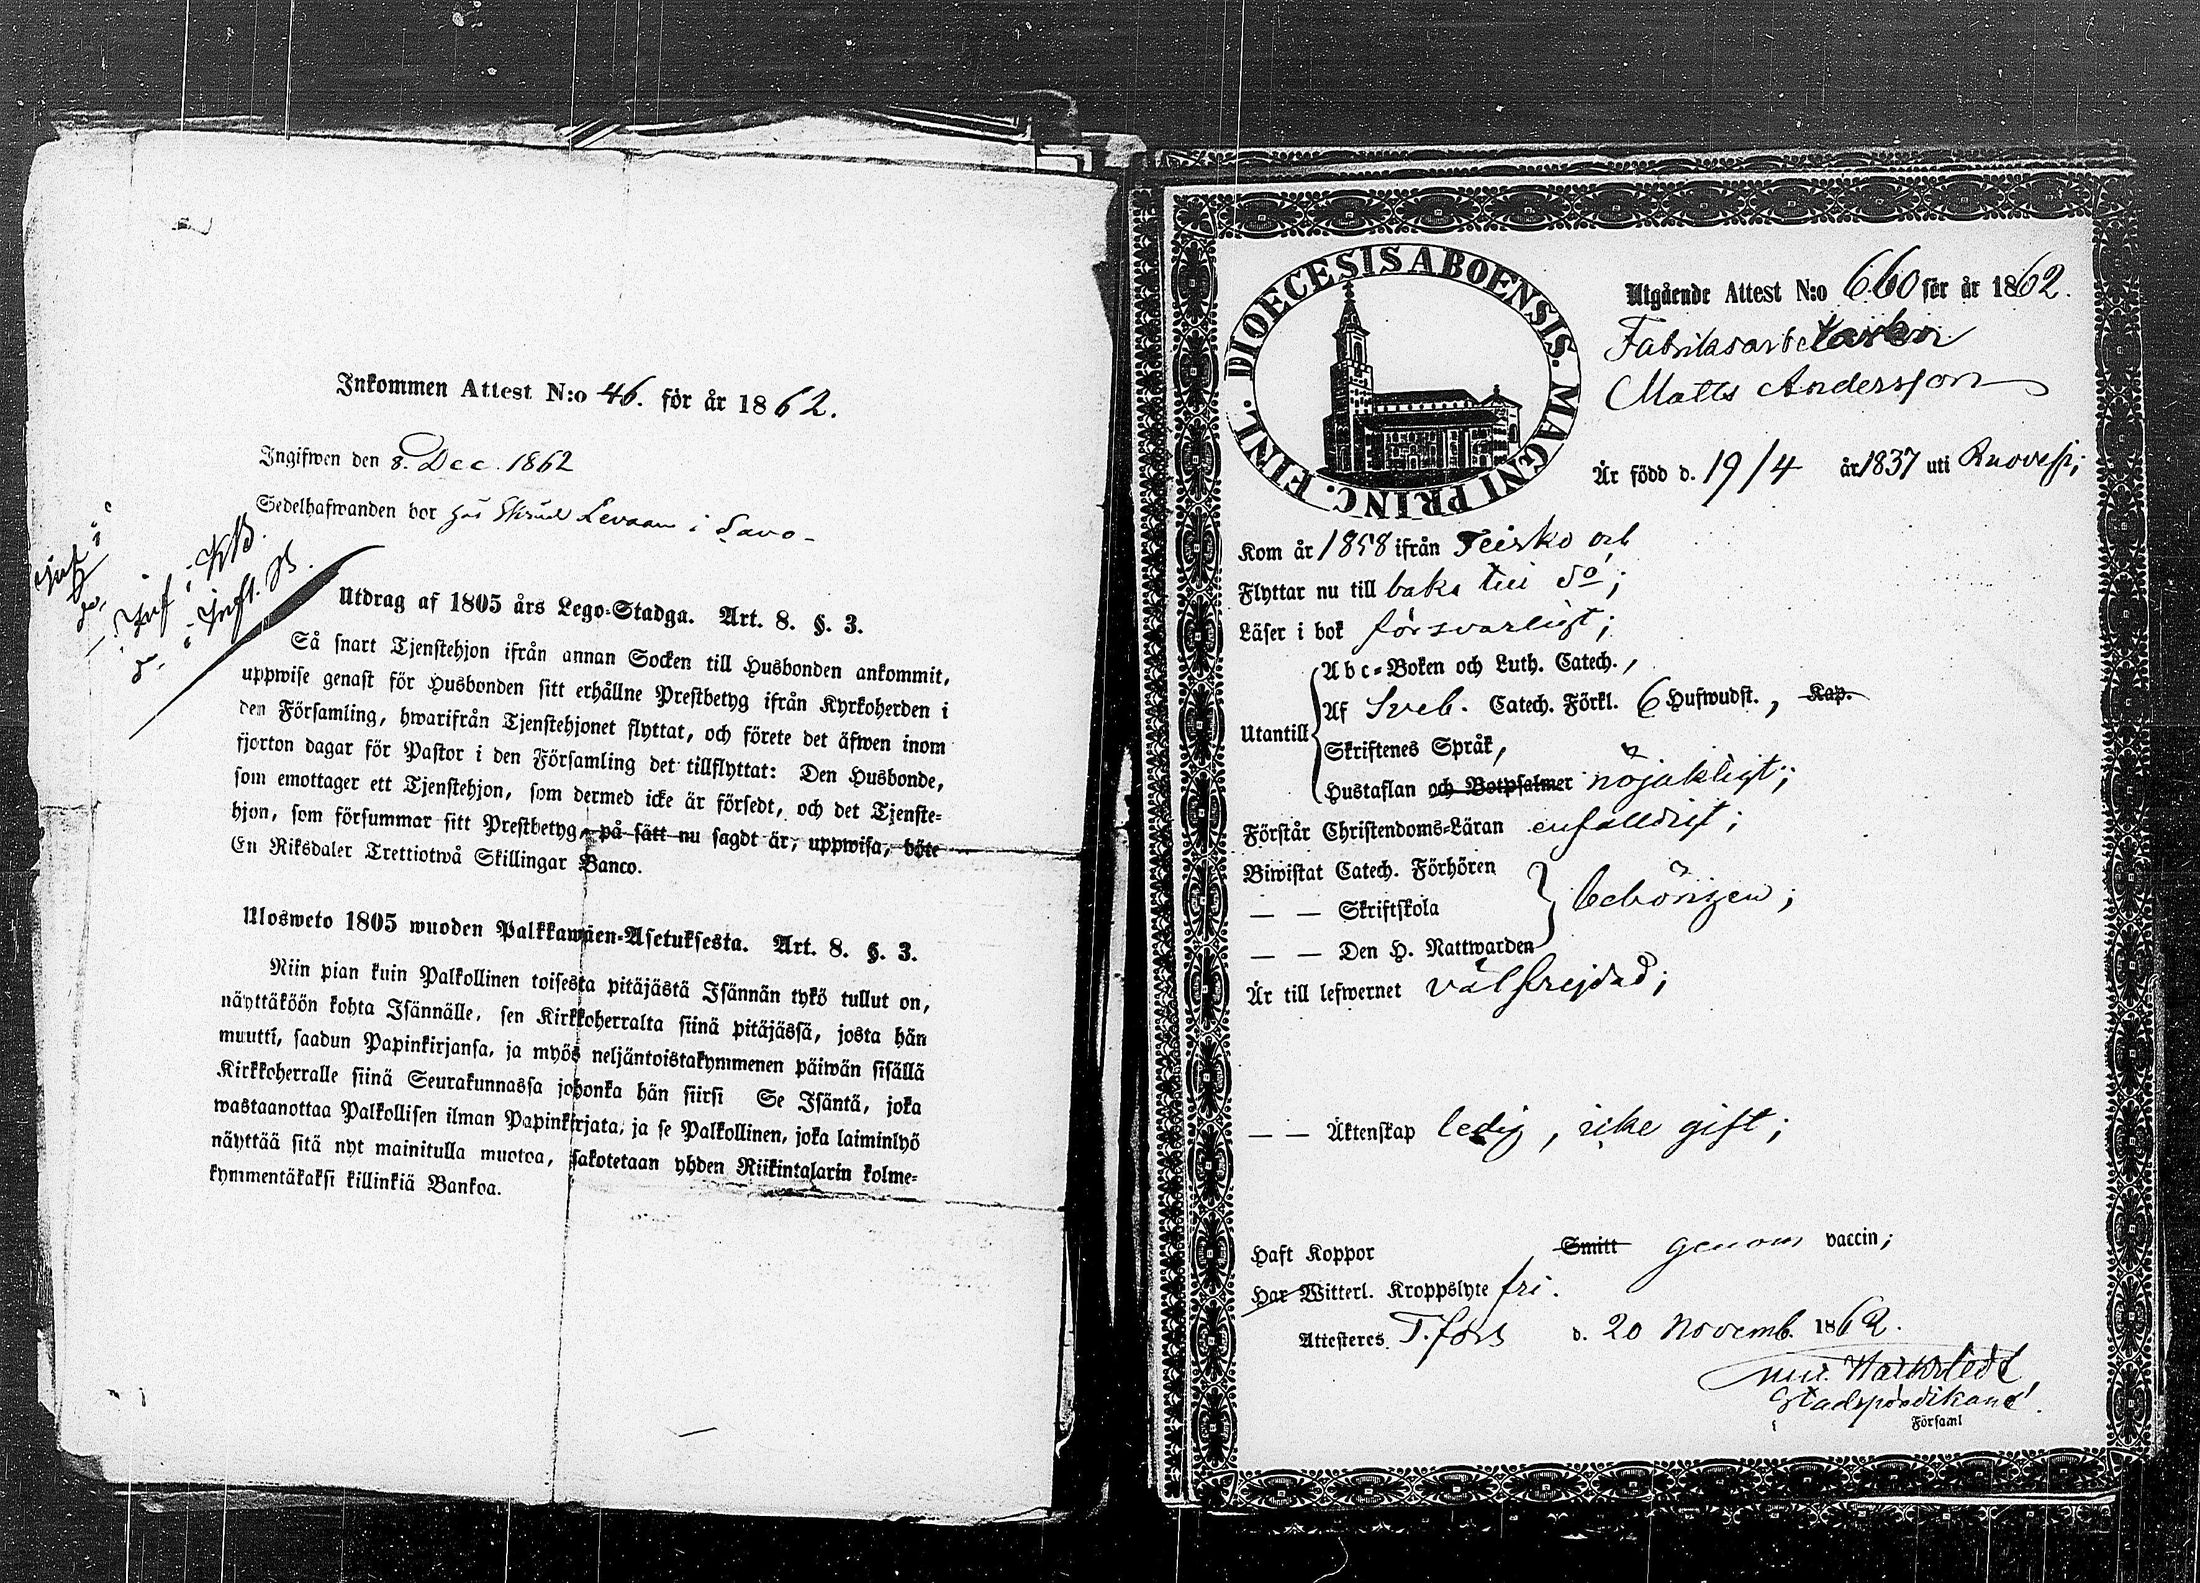 Inkommen Attest N:o 46. för år 1862.
Ingifwen den 8. Dec. 1862
Sedelhafwanden bor hos Levaan i Savo
Inf i KB.
do. i Inft. B.
Utdrag af 1805 års Lego-Stadga. Art. 8. §. 3.
Så snart Tjenstehjon ifrån annan Socken till Husbonden ankommit,
uppwise genast för Husbonden sitt erhållne Prestbetyg ifrån Kyrkoherden i
den Församling, hwarifrån Tjenstehjonet flyttat, och förete det äfwen inom
fjorton dagar för Pastor i den Församling det tillflyttat: Den Husbonde,
som emottager ett Tjenstehjon, som dermed icke är försedt, och det Tjenste-
hjon, som försummar sitt Prestbetyg, på sätt nu sagdt är, uppwisa, böte
En Riksdaler Trettiotwå Skillingar Banco.
Ulosweto 1805 wuoden Palkkawäen-Asetuksesta. Art. 8. §. 3.
Niin pian kuin Palkollinen toisesta pitäjästä Isännän tykö tullut on,
näyttäköön kohta Isännälle, sen Kirkkoherralta siinä pitäjässä, josta hän
muutti, saadun Papinkirjansa, ja myös neljäntoistakymmenen päiwän sisällä
Kirkkoherralle siinä Seurakunnassa johonka hän siirsi Se Isäntä, joka
wastaanottaa Palkollisen ilman Papinkirjata, ja se Palkollinen, joka laiminlyö
näyttää sitä nyt mainitulla muotoa, sakotetaan yhden Riikintalarin kolme-
kymmentäkaksi killinkiä Bankoa.
DIOECESIS ABOENSIS. MAGNI PRINC. FINL.
Utgående Attest N:o 660 för år 1862.
Fabriksarbetaren
Matts Andersson
Är född d. 19/4 år 1837 uti Ruovesi;
Kom år 1858 ifrån Teisko och
Flyttar nu till baka till do;
Läser i bok försvarligt;
Utantill
Abc-Boken och Luth. Catech.,
Af Sveb. Catech. Förkl. 6 Hufwudst., Kap.
Skriftenes Språk,
Hustaflan och Botpsalmer nöjaktigt;
Förstår Christendoms-Läran enfaldigt;
Biwistat Catech. Förhören
— — Skriftskola behörigen;
— — Den H. Nattwarden
Är till lefwernet välfrejdad;
— — Äktenskap ledig, icke gift;
Haft Koppor Smitt genom vaccin;
Har Witterl. Kroppslyte fri.
Attesteres T.fors d. 20 Novemb. 1862.
Stadspredikant.
Församl